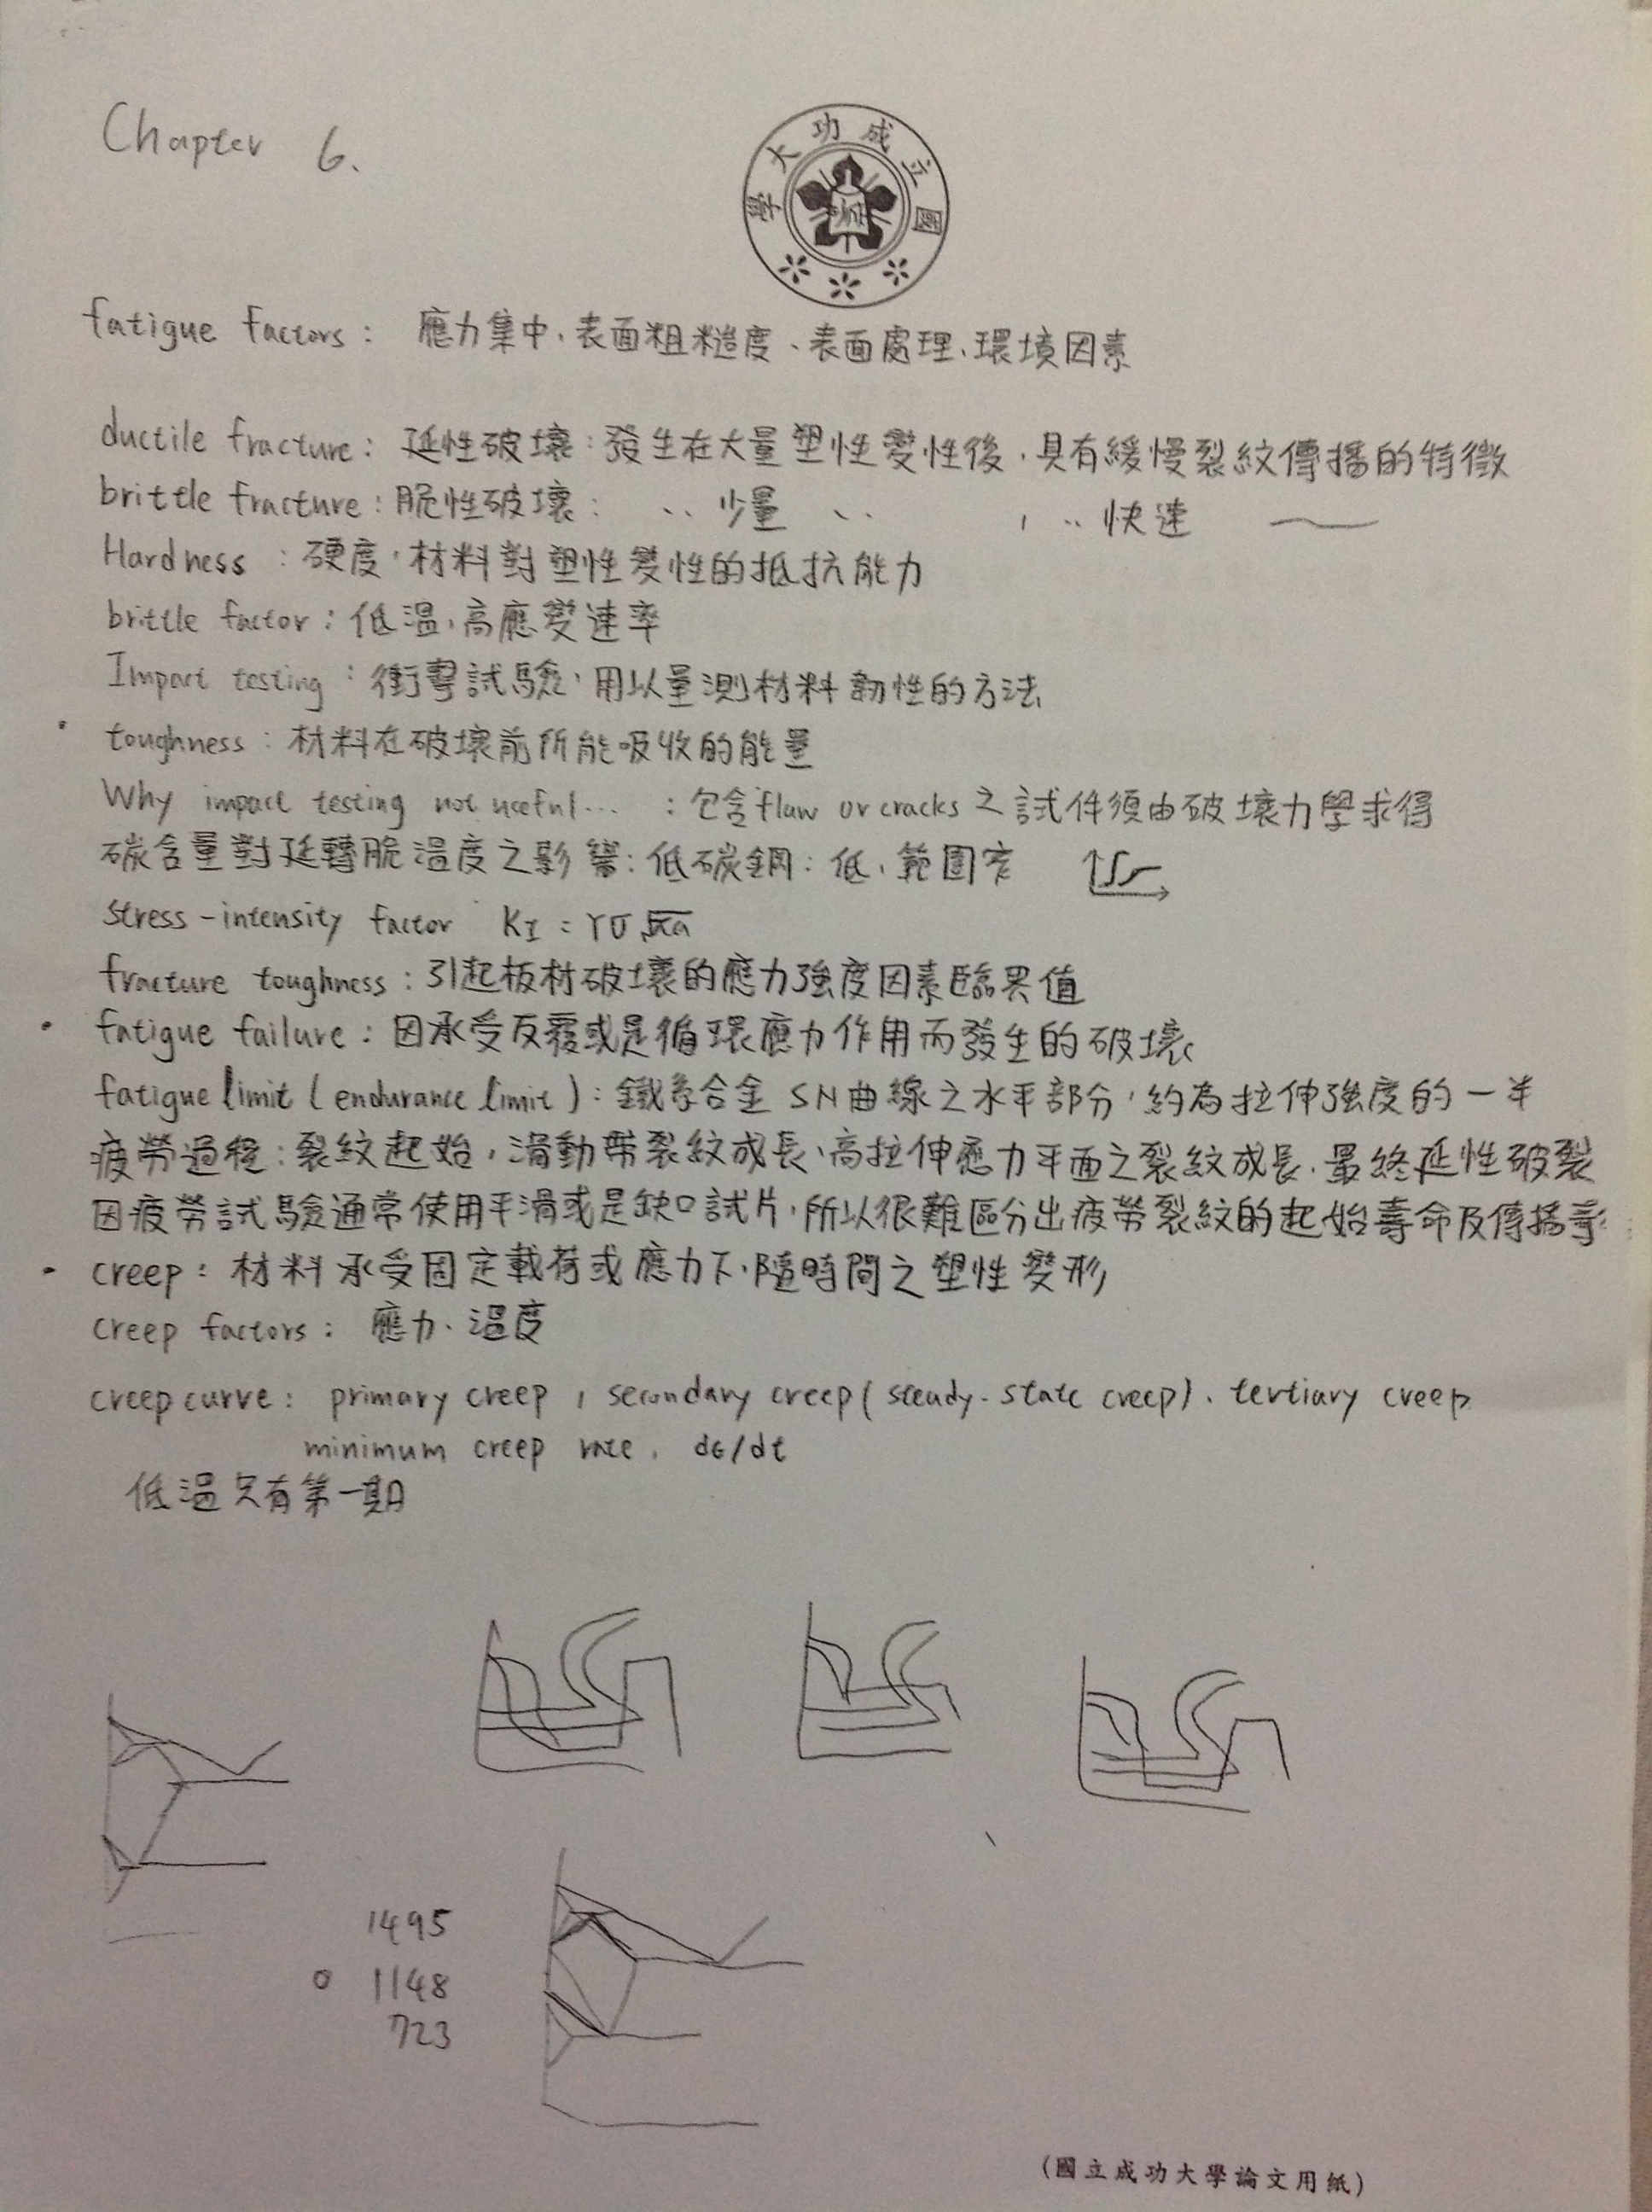 Chapter 6.
國立成功大學
fatigue factors： 應力集中、表面粗糙度、表面處理、環境因素
ductile fracture：延性破壞：發生在大量塑性變性後，具有緩慢裂紋傳播的特徵
brittle fracture：脆性破壞： 〃 少量 〃 ， 〃 快速 ～
Hardness ：硬度，材料對塑性變性的抵抗能力
brittle factor：低溫，高應變速率
Impact testing：衝擊試驗，用以量測材料韌性的方法
toughness：材料在破壞前所能吸收的能量
Why impact testing not useful… ：包含 flaw or cracks 之試件須由破壞力學求得
碳含量對延轉脆溫度之影響：低碳鋼：低，範圍窄
stress-intensity factor KI = Yσ√πa
fracture toughness：引起板材破壞的應力強度因素臨界值
fatigue failure：因承受反覆或是循環應力作用而發生的破壞
fatigue limit (endurance limit)：鐵系合金 SN曲線之水平部分，約為拉伸強度的一半
疲勞過程：裂紋起始，滑動帶裂紋成長，高拉伸應力平面之裂紋成長，最終延性破裂
因疲勞試驗通常使用平滑或是缺口試片，所以很難區分出疲勞裂紋的起始壽命及傳播
creep：材料承受固定載荷或應力下，隨時間之塑性變形
creep factors： 應力、溫度
creep curve： primary creep , secondary creep (steady-state creep)、tertiary creep
minimum creep rate, dε/dt
低溫只有第一期
1495
1148
723
(國立成功大學論文用紙)